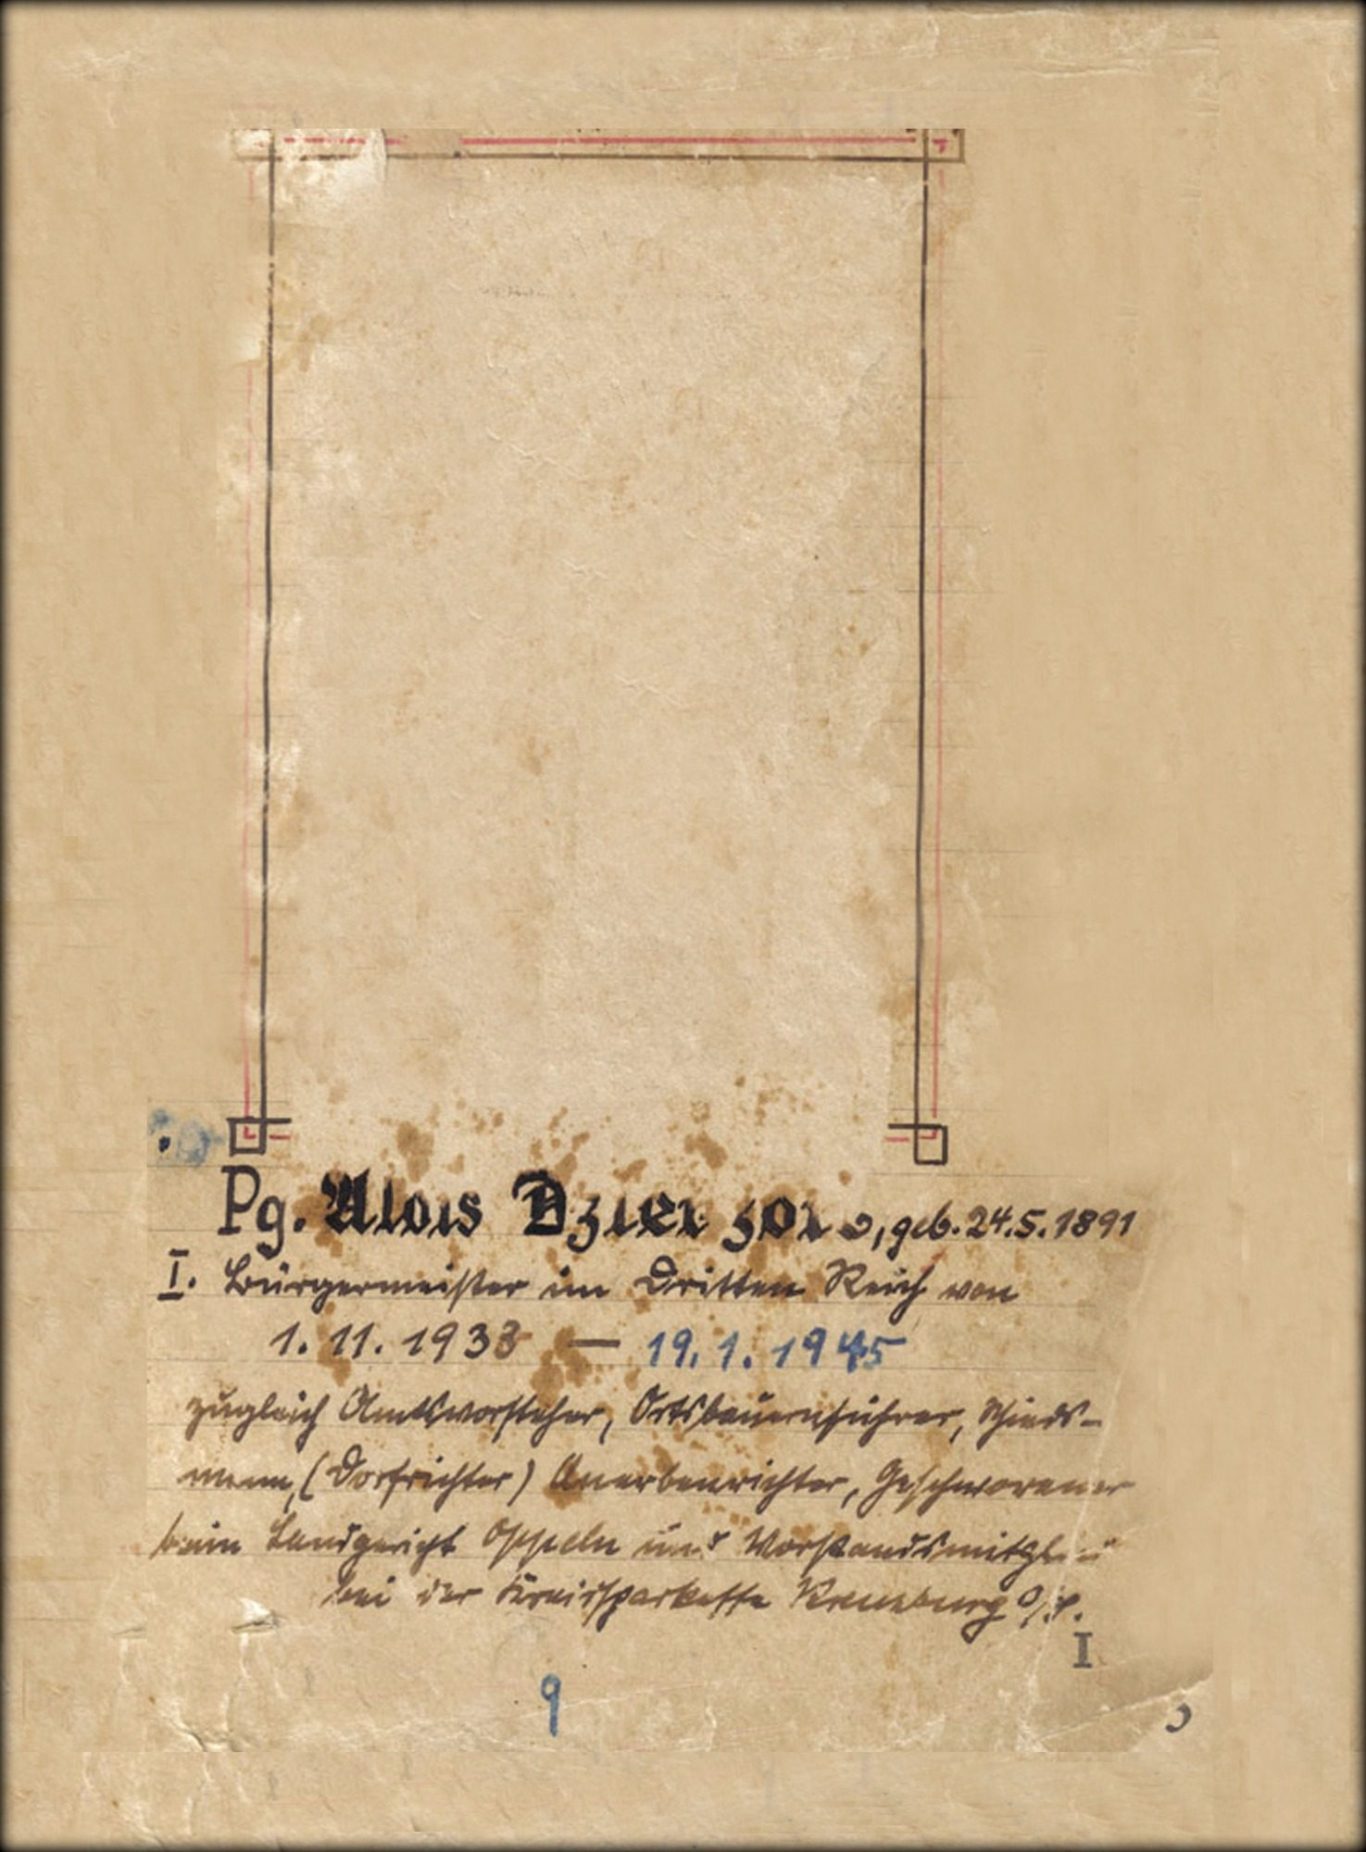 Pg. Alois Dzier zon, geb. 24.5.1891
I. Bürgermeister im Dritten Reich von
1. 11. 1933 — 19. 1. 1945
zugleich Amtsvorsteher, Ortsbauernführer, Schieds-
mann, (Dorfrichter) Anerbenrichter, Geschworener
beim Landgericht Oppeln und Vorstandsmitglied
bei der Kreissparkasse Kreuzburg O/S.
I
9